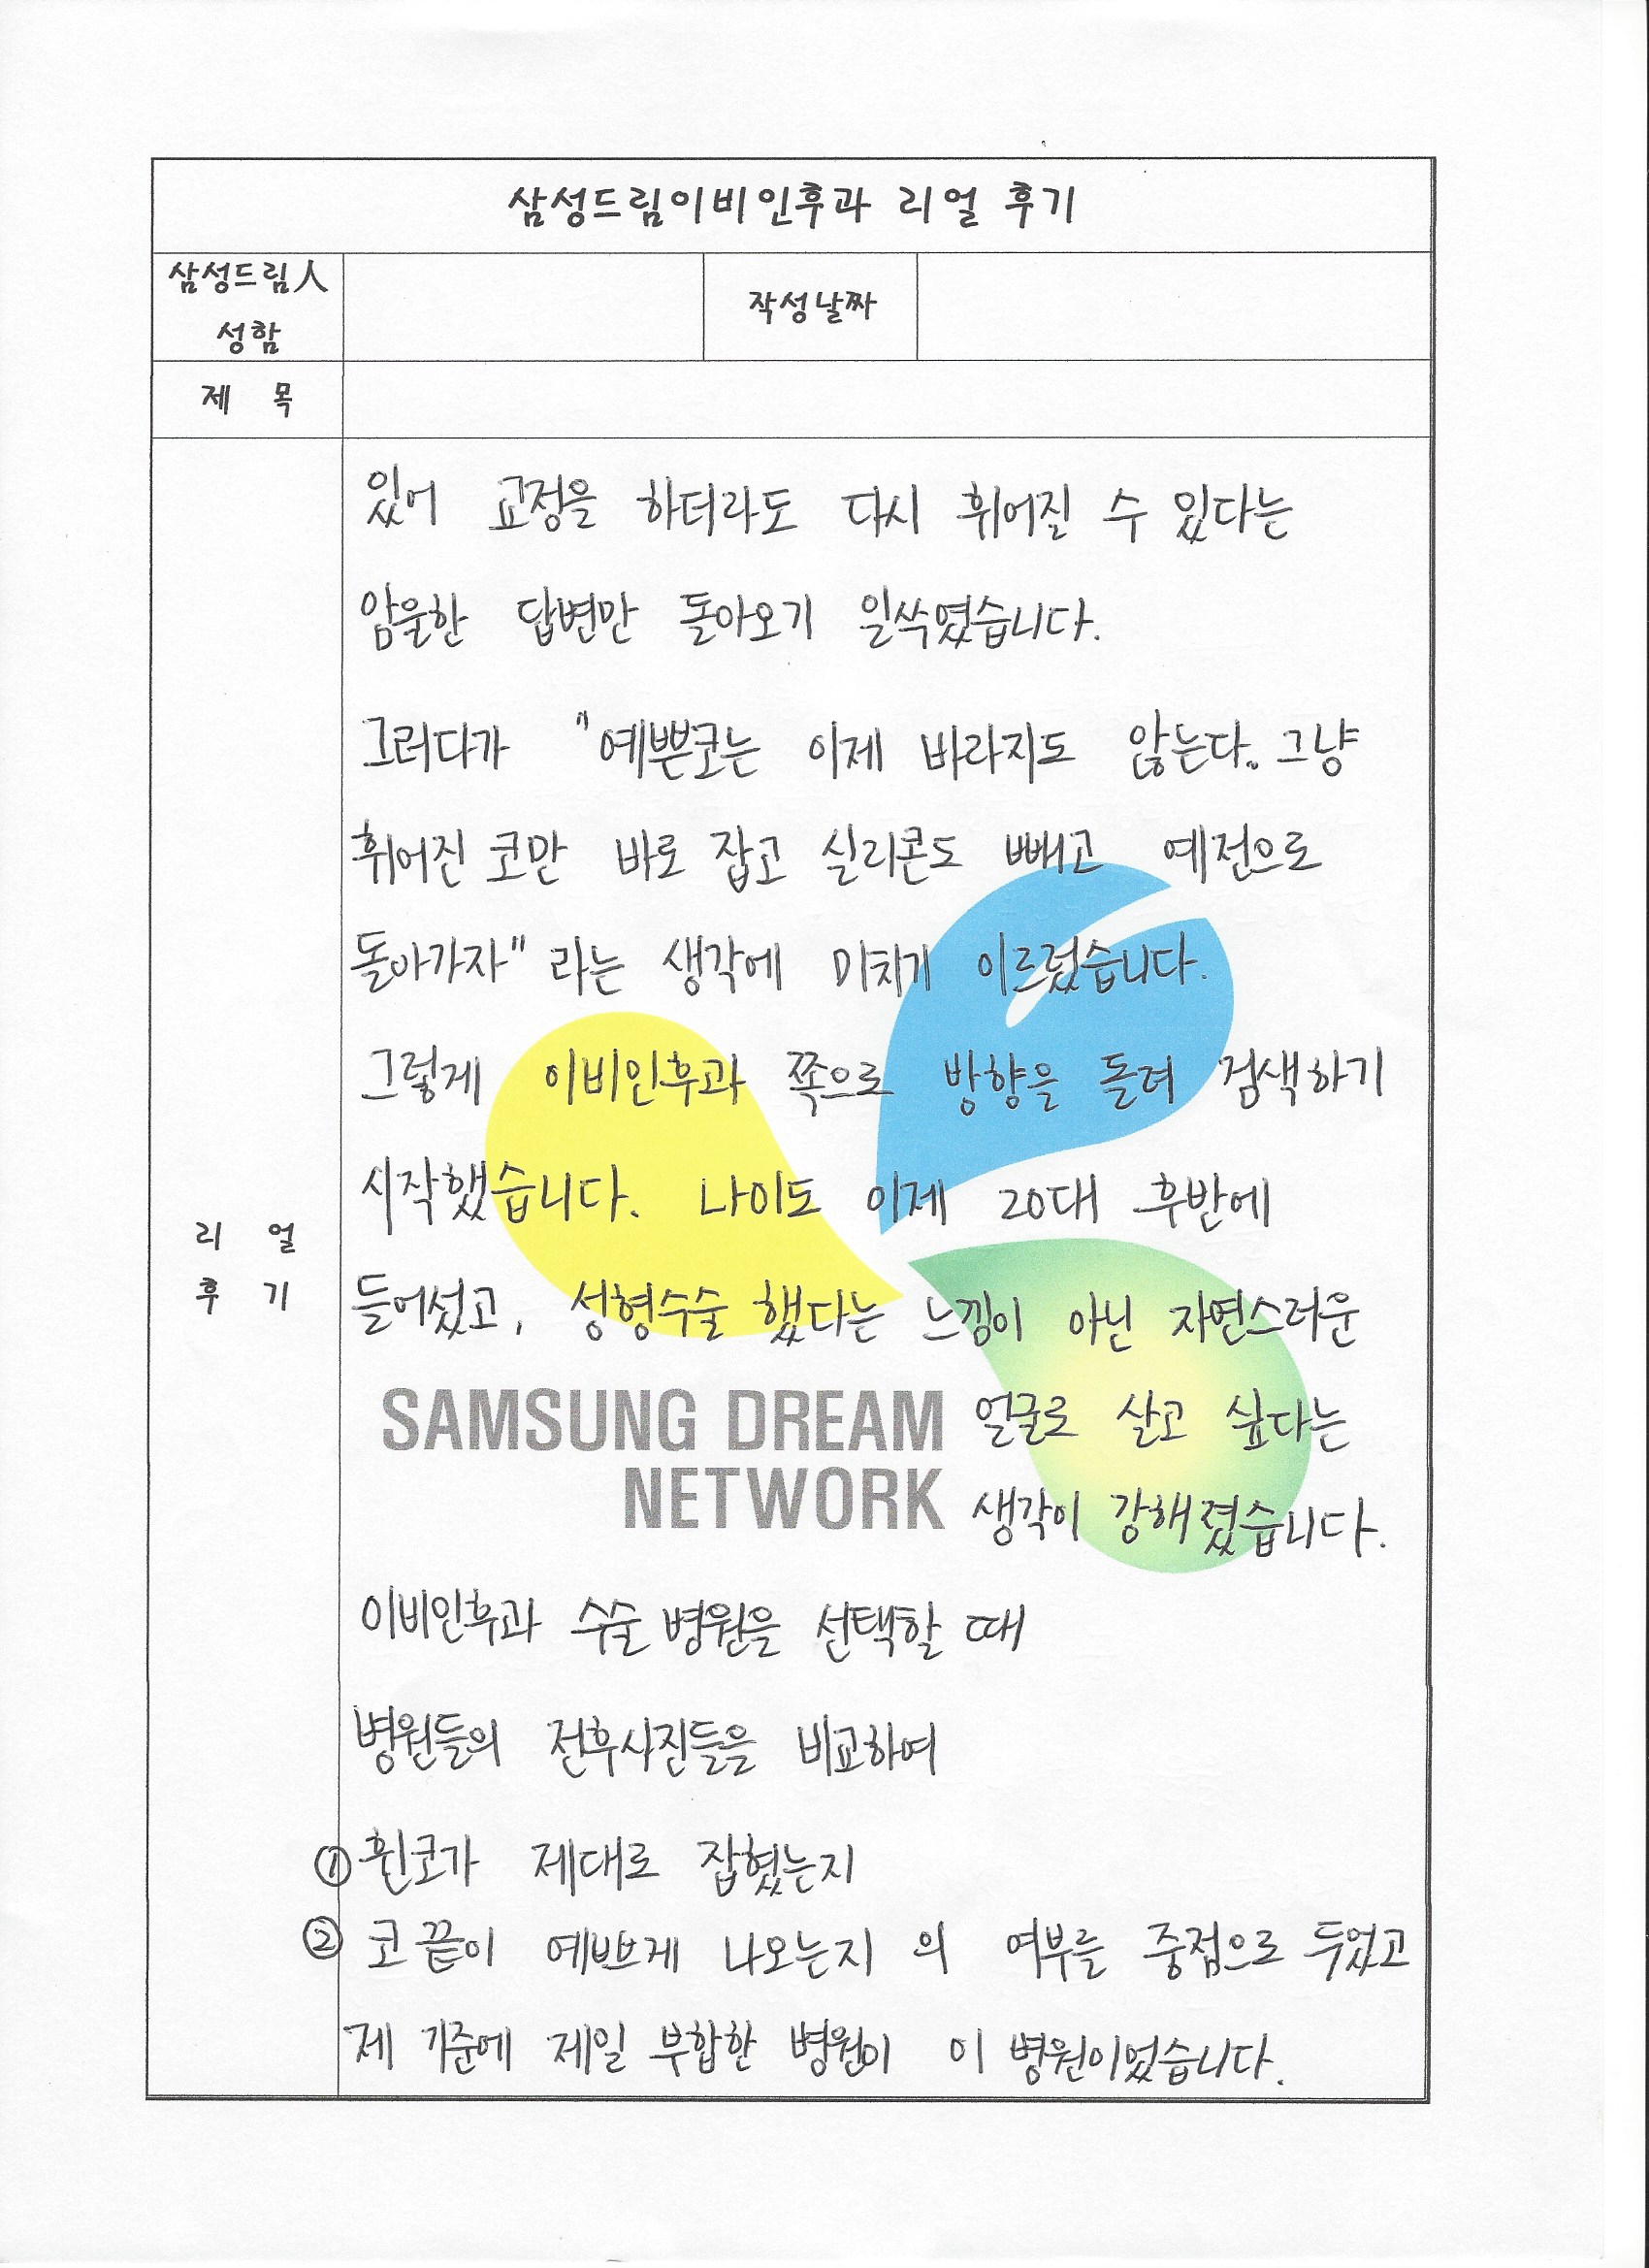 삼성드림이비인후과 리얼 후기
삼성드림人
성함
작성날짜
제 목
있어 교정을 하더라도 다시 휘어질 수 있다는
암울한 답변만 돌아오기 일쑥였습니다.
그러다가 "예쁜코는 이제 바라지도 않는다. 그냥
휘어진 코만 바로 잡고 실리콘도 빼고 예전으로
돌아가자" 라는 생각에 미치기 이르렀습니다.
그렇게 이비인후과 쪽으로 방향을 돌려 검색하기
시작했습니다. 나이도 이제 20대 후반에
들어섰고, 성형수술 했다는 느낌이 아닌 자연스러운
SAMSUNG DREAM
NETWORK
얼굴로 살고 싶다는
생각이 강해졌습니다.
이비인후과 수술 병원을 선택할 때
병원들의 전후사진들을 비교하여
① 휜코가 제대로 잡혔는지
② 코 끝이 예쁘게 나오는지 의 여부를 중점으로 두었고
제 기준에 제일 부합한 병원이 이 병원이었습니다.
리 얼
후 기